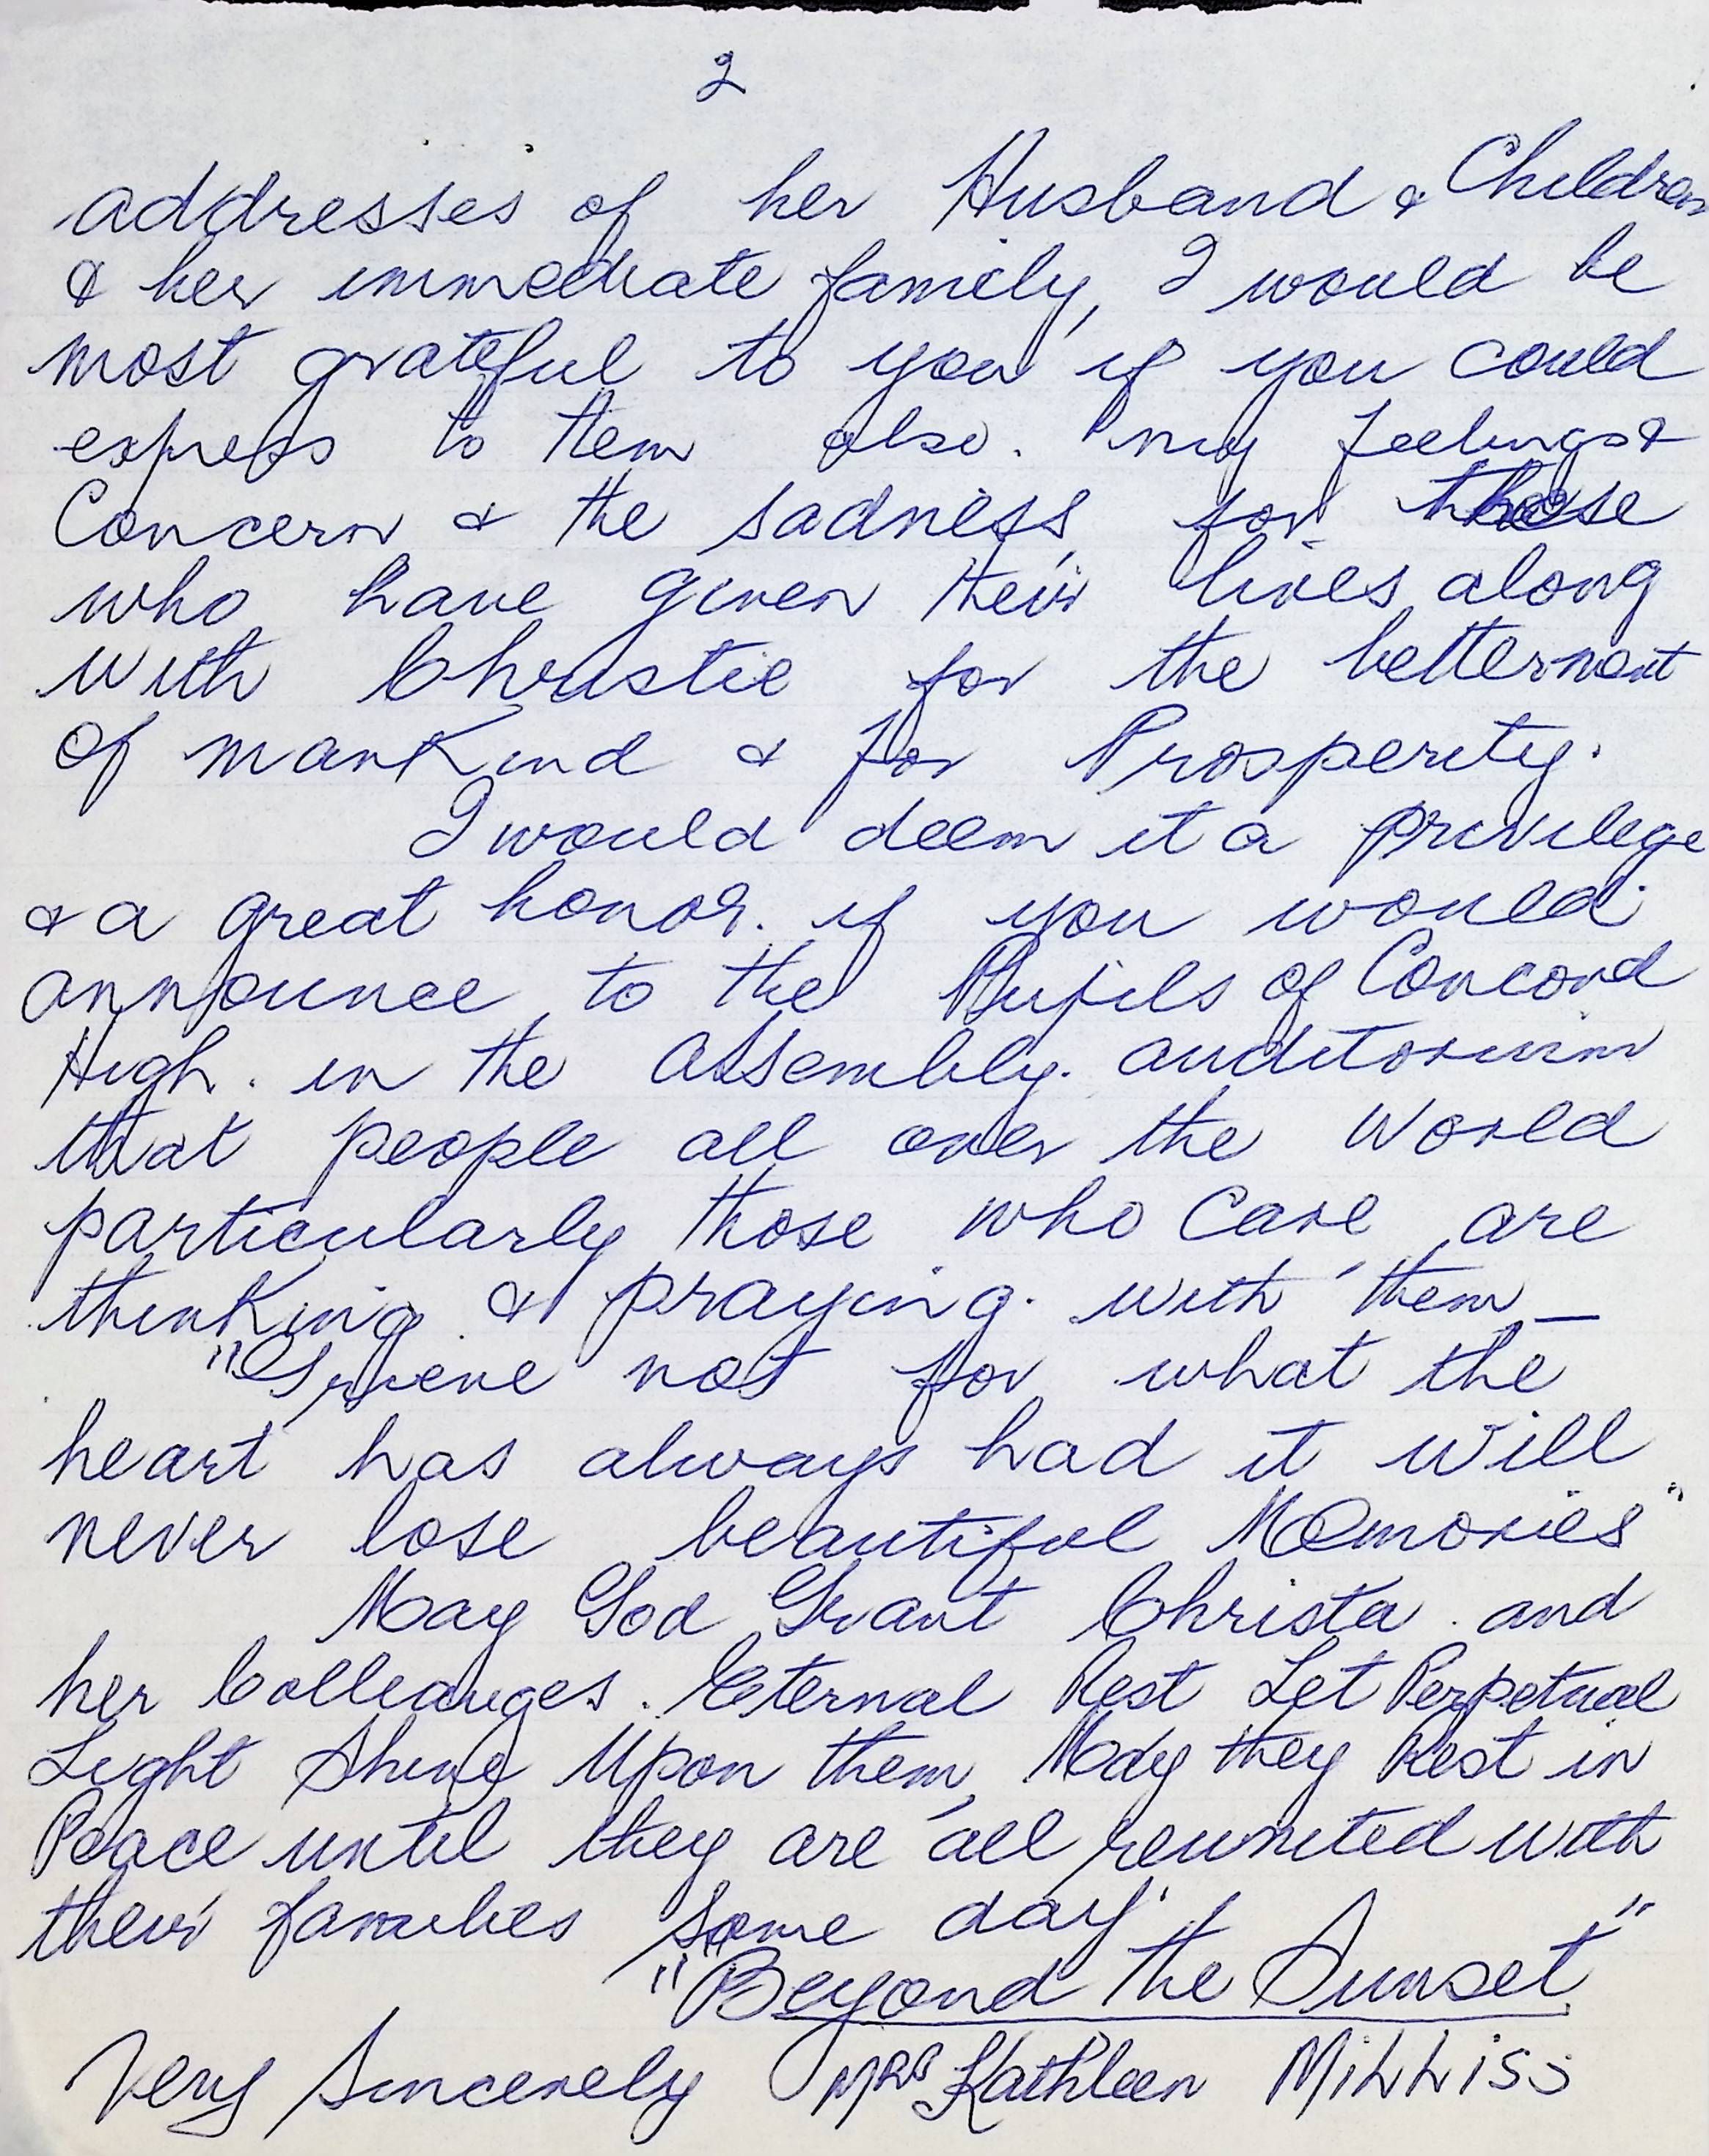 2
addresses of her Husband & Children
& her immediate family, I would be
most grateful to you if you could
express to them also. my feelings &
Concern & the sadness, for those
who have given their lives along
with Christie for the betterment
of mankind & for Prosperity.
I would deem it a privilege
& a great honor. if you would
announce to the Pupils of Concord
High. in the Assembly. auditorium
that people all over the World
particularly those who Care are
thinking & praying. with them —
"Grieve not for what the
heart has always had it will
never lose beautiful Memories"
May God Grant Christa and
her Colleauges. Eternal Rest Let Perpetual
Light Shine Upon them, May they Rest in
Peace until they are all reunited with
their families some day.
"Beyond the Sunset"
Very Sincerely Mrs Kathleen Milliss